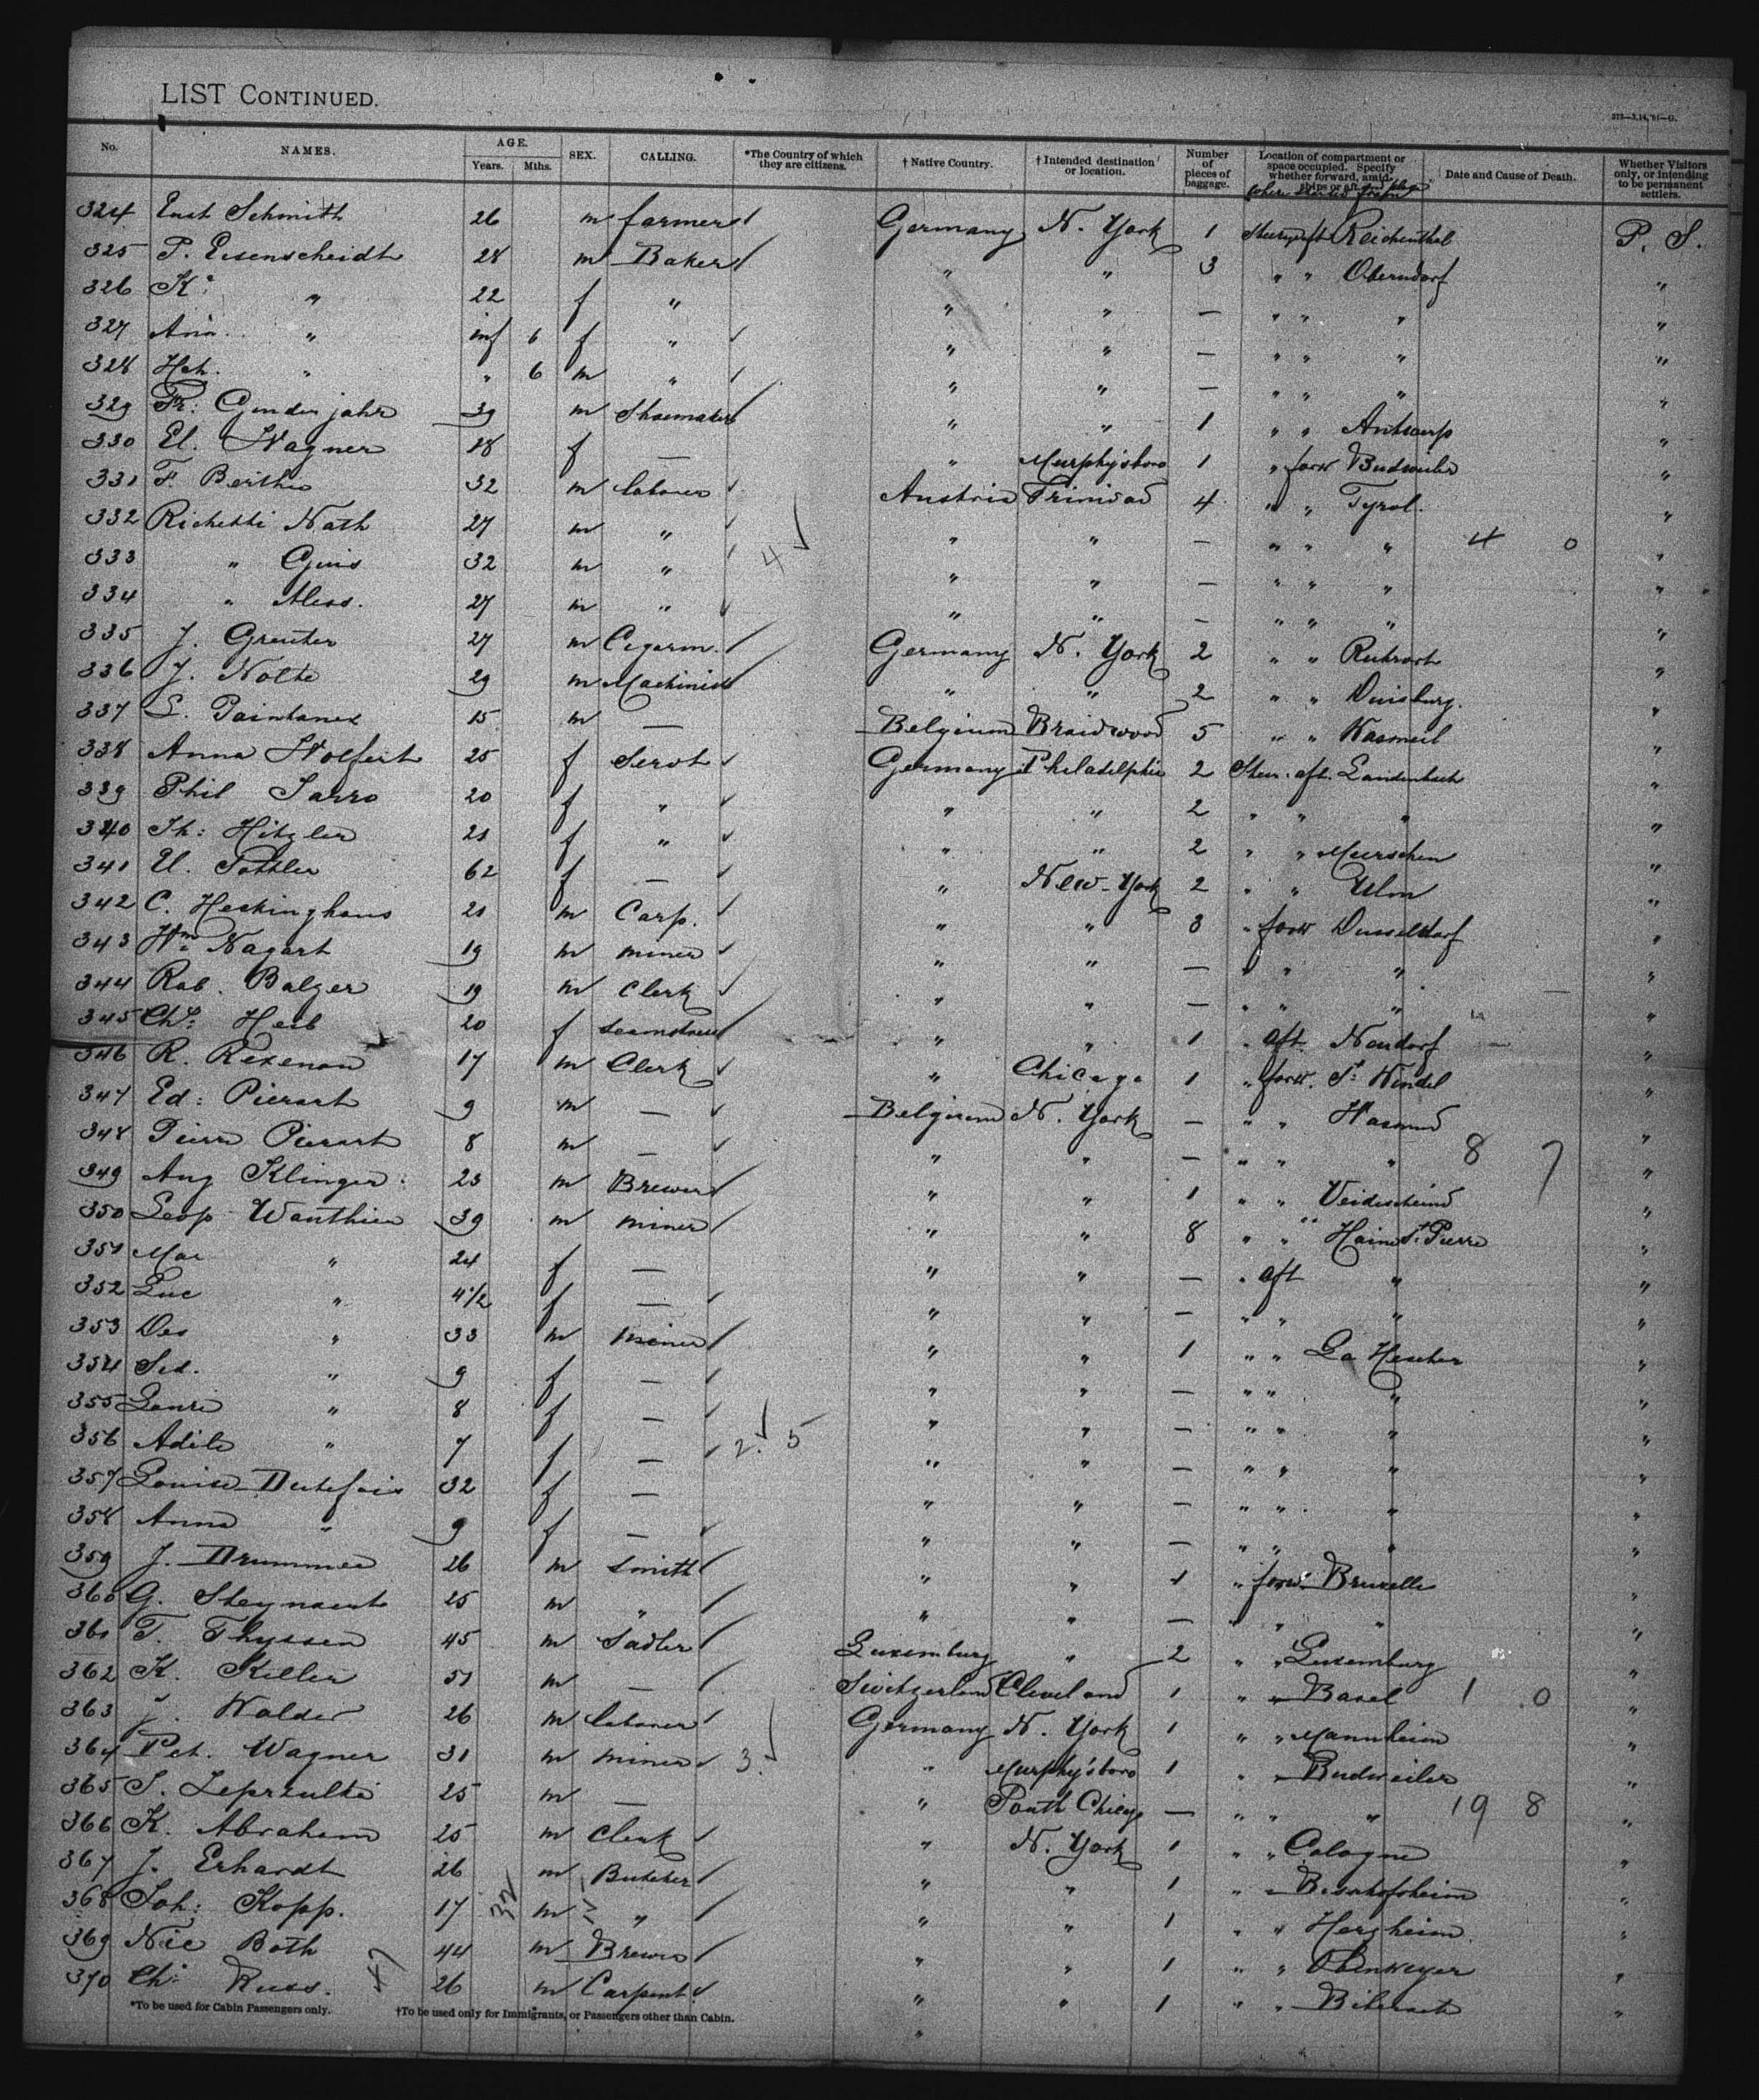 LIST CONTINUED.
373—3,14,'91—G.
No. NAMES. AGE. Years. Mths. SEX. CALLING. *The Country of which they are citizens. † Native Country. † Intended destination or location. Number of pieces of baggage. Location of compartment or space occupied. Specify whether forward, amidships or aft Date and Cause of Death. Whether Visitors only, or intending to be permanent settlers.
324 Ernst Schmith 26 m farmer Germany N. York 1 Reichenthal P. S.
325 P. Eisenscheidt 28 m Baker " " 3 " " Oberndorf "
326 K: " 22 f " " " — " " " "
327 Ann " inf 6 f " " " — " " " "
328 Hch. " " 6 m " " " — " " " "
329 Fr: Gender jahr 39 m Shoemaker " " 1 " " Antwerp "
330 El. Wagner 18 f — " Murphysboro 1 " forw Budweiler "
331 F. Berthi 32 m laborer Austria Trinidad 4 " " Tyrol. "
332 Richetti Nath 27 m " " " — " " " 4 0 "
333 " Guis 32 m " " " — " " " "
334 " Aless. 27 m " " " — " " " "
335 J. Greuter 27 m Cigarm. Germany N. York 2 " " Ruhrort "
336 J. Nolte 29 m Machinist " " 2 " " Duisburg. "
337 L. 15 m — Belgium Braidwood 5 " " "
338 Anna Wolfert 25 f Servt Germany Philadelphia 2 Steer. aft. Laudenbach "
339 Phil Sarro 20 f " " " 2 " " " "
340 Th: Hitzler 21 f " " " 2 " " "
341 U. 62 f — " New-York 2 " " Ulm "
342 C. Heskinghaus 21 m Carp. " " 3 " forw Dusseldorf "
343 Wm Nagart 19 m miner " " — " " " "
344 Rob. Balzer 19 m Clerk " " — " " " "
345 Chs: Heib 20 f seamstress " " 1 " aft Naudorf "
346 R. Rexenon 17 m Clerk " Chicago 1 " forw. St: Wendel "
347 Ed: Pierart 9 m — Belgium N. York — " " "
348 Pierre Pierart 8 m — " " — " " " 8 7 "
349 Aug Klinger 23 m Brewer " " 1 " " "
350 Leop Wauthier 39 m miner " " 8 " " Haine St. Pierre "
351 Mar " 24 f — " " — " aft " "
352 Luc " 4 1/2 f — " " — " " " "
353 Des " 33 m miner " " 1 " " La "
354 " 9 f — " " — " " " "
355 " 8 f — " " — " " " "
356 Adile " 7 f — " " — " " " "
357 Louise Dutefois 32 f — " " — " " " "
358 Anna " 9 f — " " — " " " "
359 J. Drummer 26 m Smith " " 1 " forw Bruxelle "
360 G. Steynaert 25 m " " " — " " " "
361 T. Thyssen 45 m Sadler Luxemburg " 2 " " Luxemburg "
362 K. Keller 51 m — Switzerland Cleveland 1 " " Basel 1 0 "
363 J. Walder 26 m laborer Germany N. York 1 " " Mannheim "
364 Pet. Wagner 31 m miner " Murphysboro 1 " " Budweiler "
365 S. 25 m — " South Chicago — " " " 19 8 "
366 K. Abraham 25 m Clerk " N. York 1 " " Cologne "
367 J. Erhardt 26 m Butcher " " 1 " " Bischofsheim "
368 Joh: Kopp. 17 m " " " 1 " " Hergheim. "
369 Nic Both 44 m Brewer " " 1 " " "
370 Ch: Russ. 26 m Carpent. " " 1 " " Biberach "
*To be used for Cabin Passengers only. †To be used only for Immigrants, or Passengers other than Cabin.